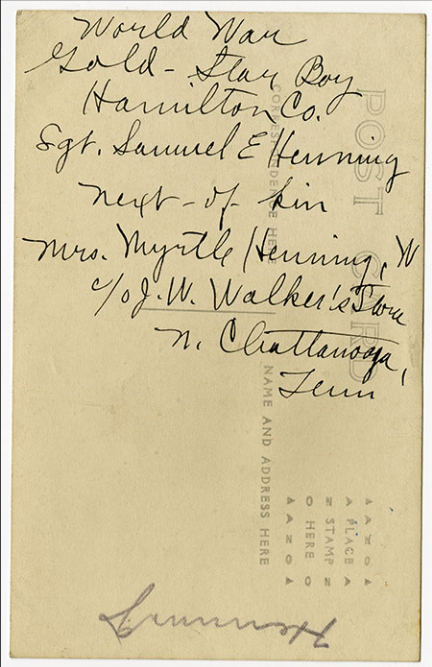 World War
Gold - Star Boy
Hamilton Co.
Sgt. Samuel E Henning
next - of - kin
Mrs. Myrtle Henning, W
c/o J. W. Walker's Store
N. Chattanooga,
Tenn
POST CARD
CORRESPONDENCE HERE
NAME AND ADDRESS HERE
AZO
PLACE
STAMP
HERE
AZO
Henning